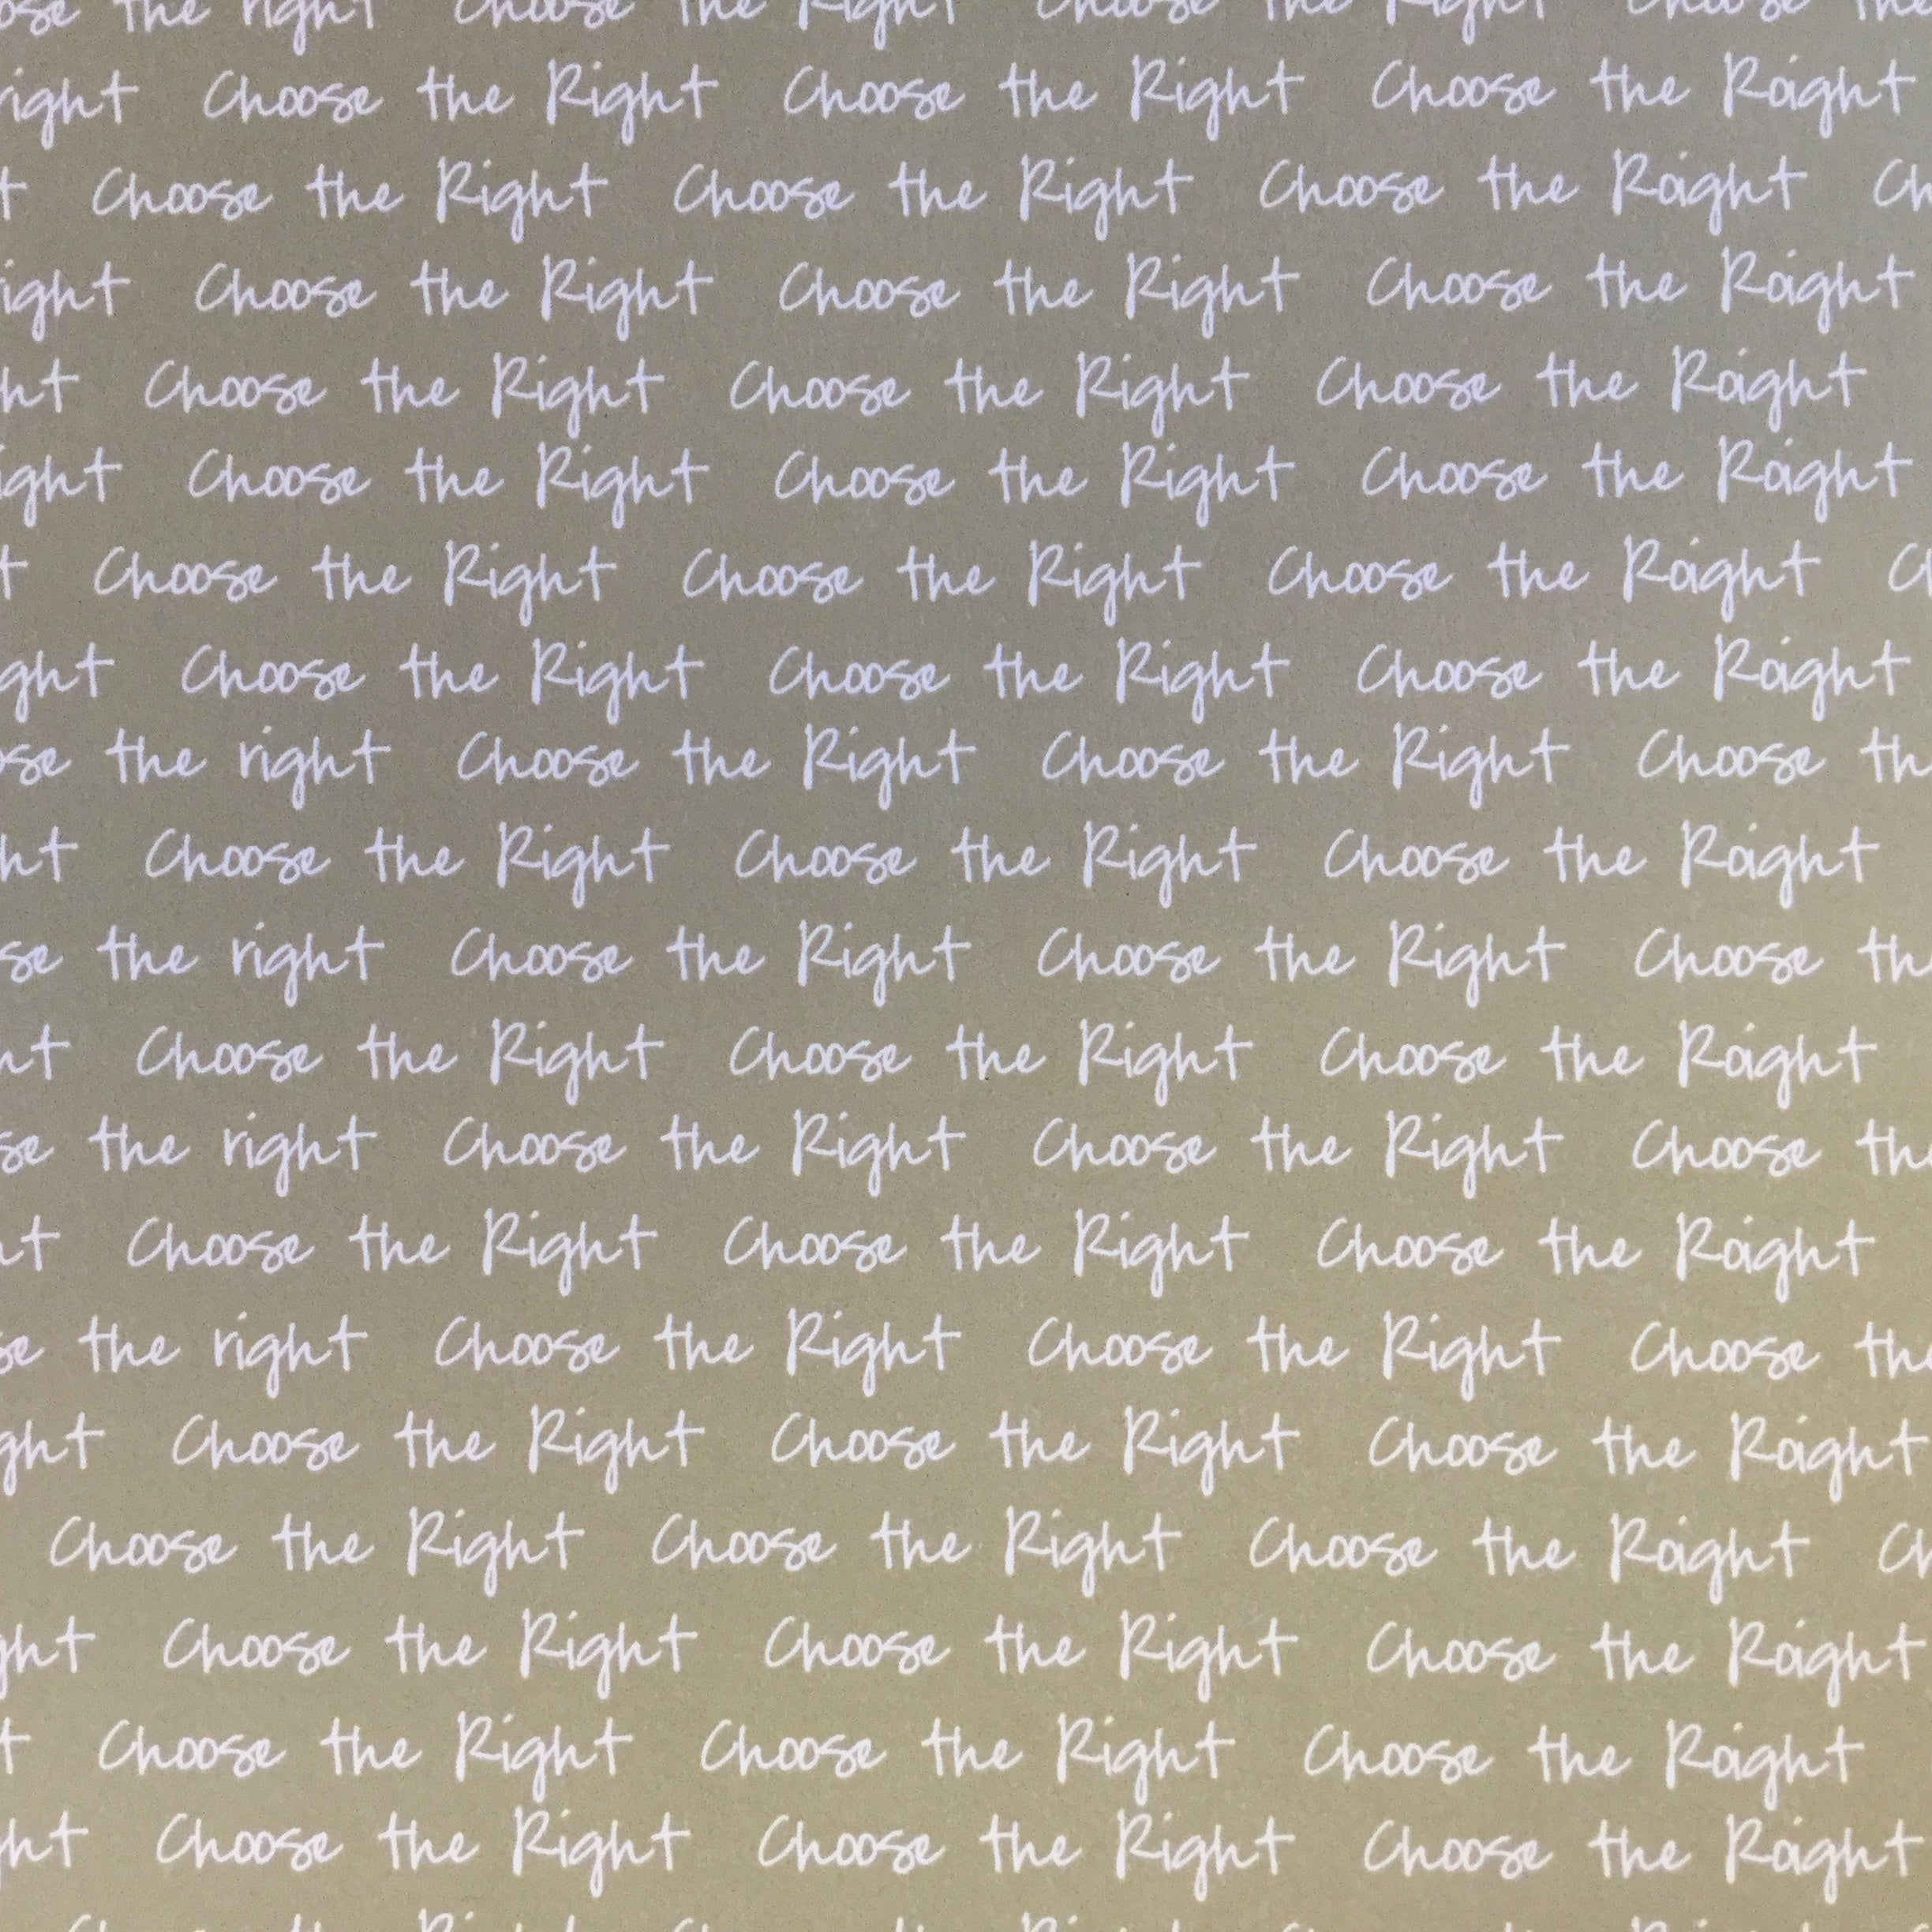 the right Choose the Right Choose the Right Choose the
Choose the Right Choose the Right Choose the Roight
Choose the Right Choose the Right Choose the Roight
Choose the Right Choose the Right Choose the Roight
Choose the Right Choose the Right Choose the Roight
Choose the Right Choose the Right Choose the Roight
Choose the Right Choose the Right Choose the Roight
Choose the Right Choose the Right Choose the Roight
the right Choose the Right Choose the Right Choose
Choose the Right Choose the Right Choose the Roight
the right Choose the Right Choose the Right Choose
Choose the Right Choose the Right Choose the Roight
the right Choose the Right Choose the Right Choose
Choose the Right Choose the Right Choose the Roight
the right Choose the Right Choose the Right Choose
Choose the Right Choose the Right Choose the Roight
Choose the Right Choose the Right Choose the Roight
Choose the Right Choose the Right Choose the Roight
Choose the Right Choose the Right Choose the Roight
Choose the Right Choose the Right Choose the Roight